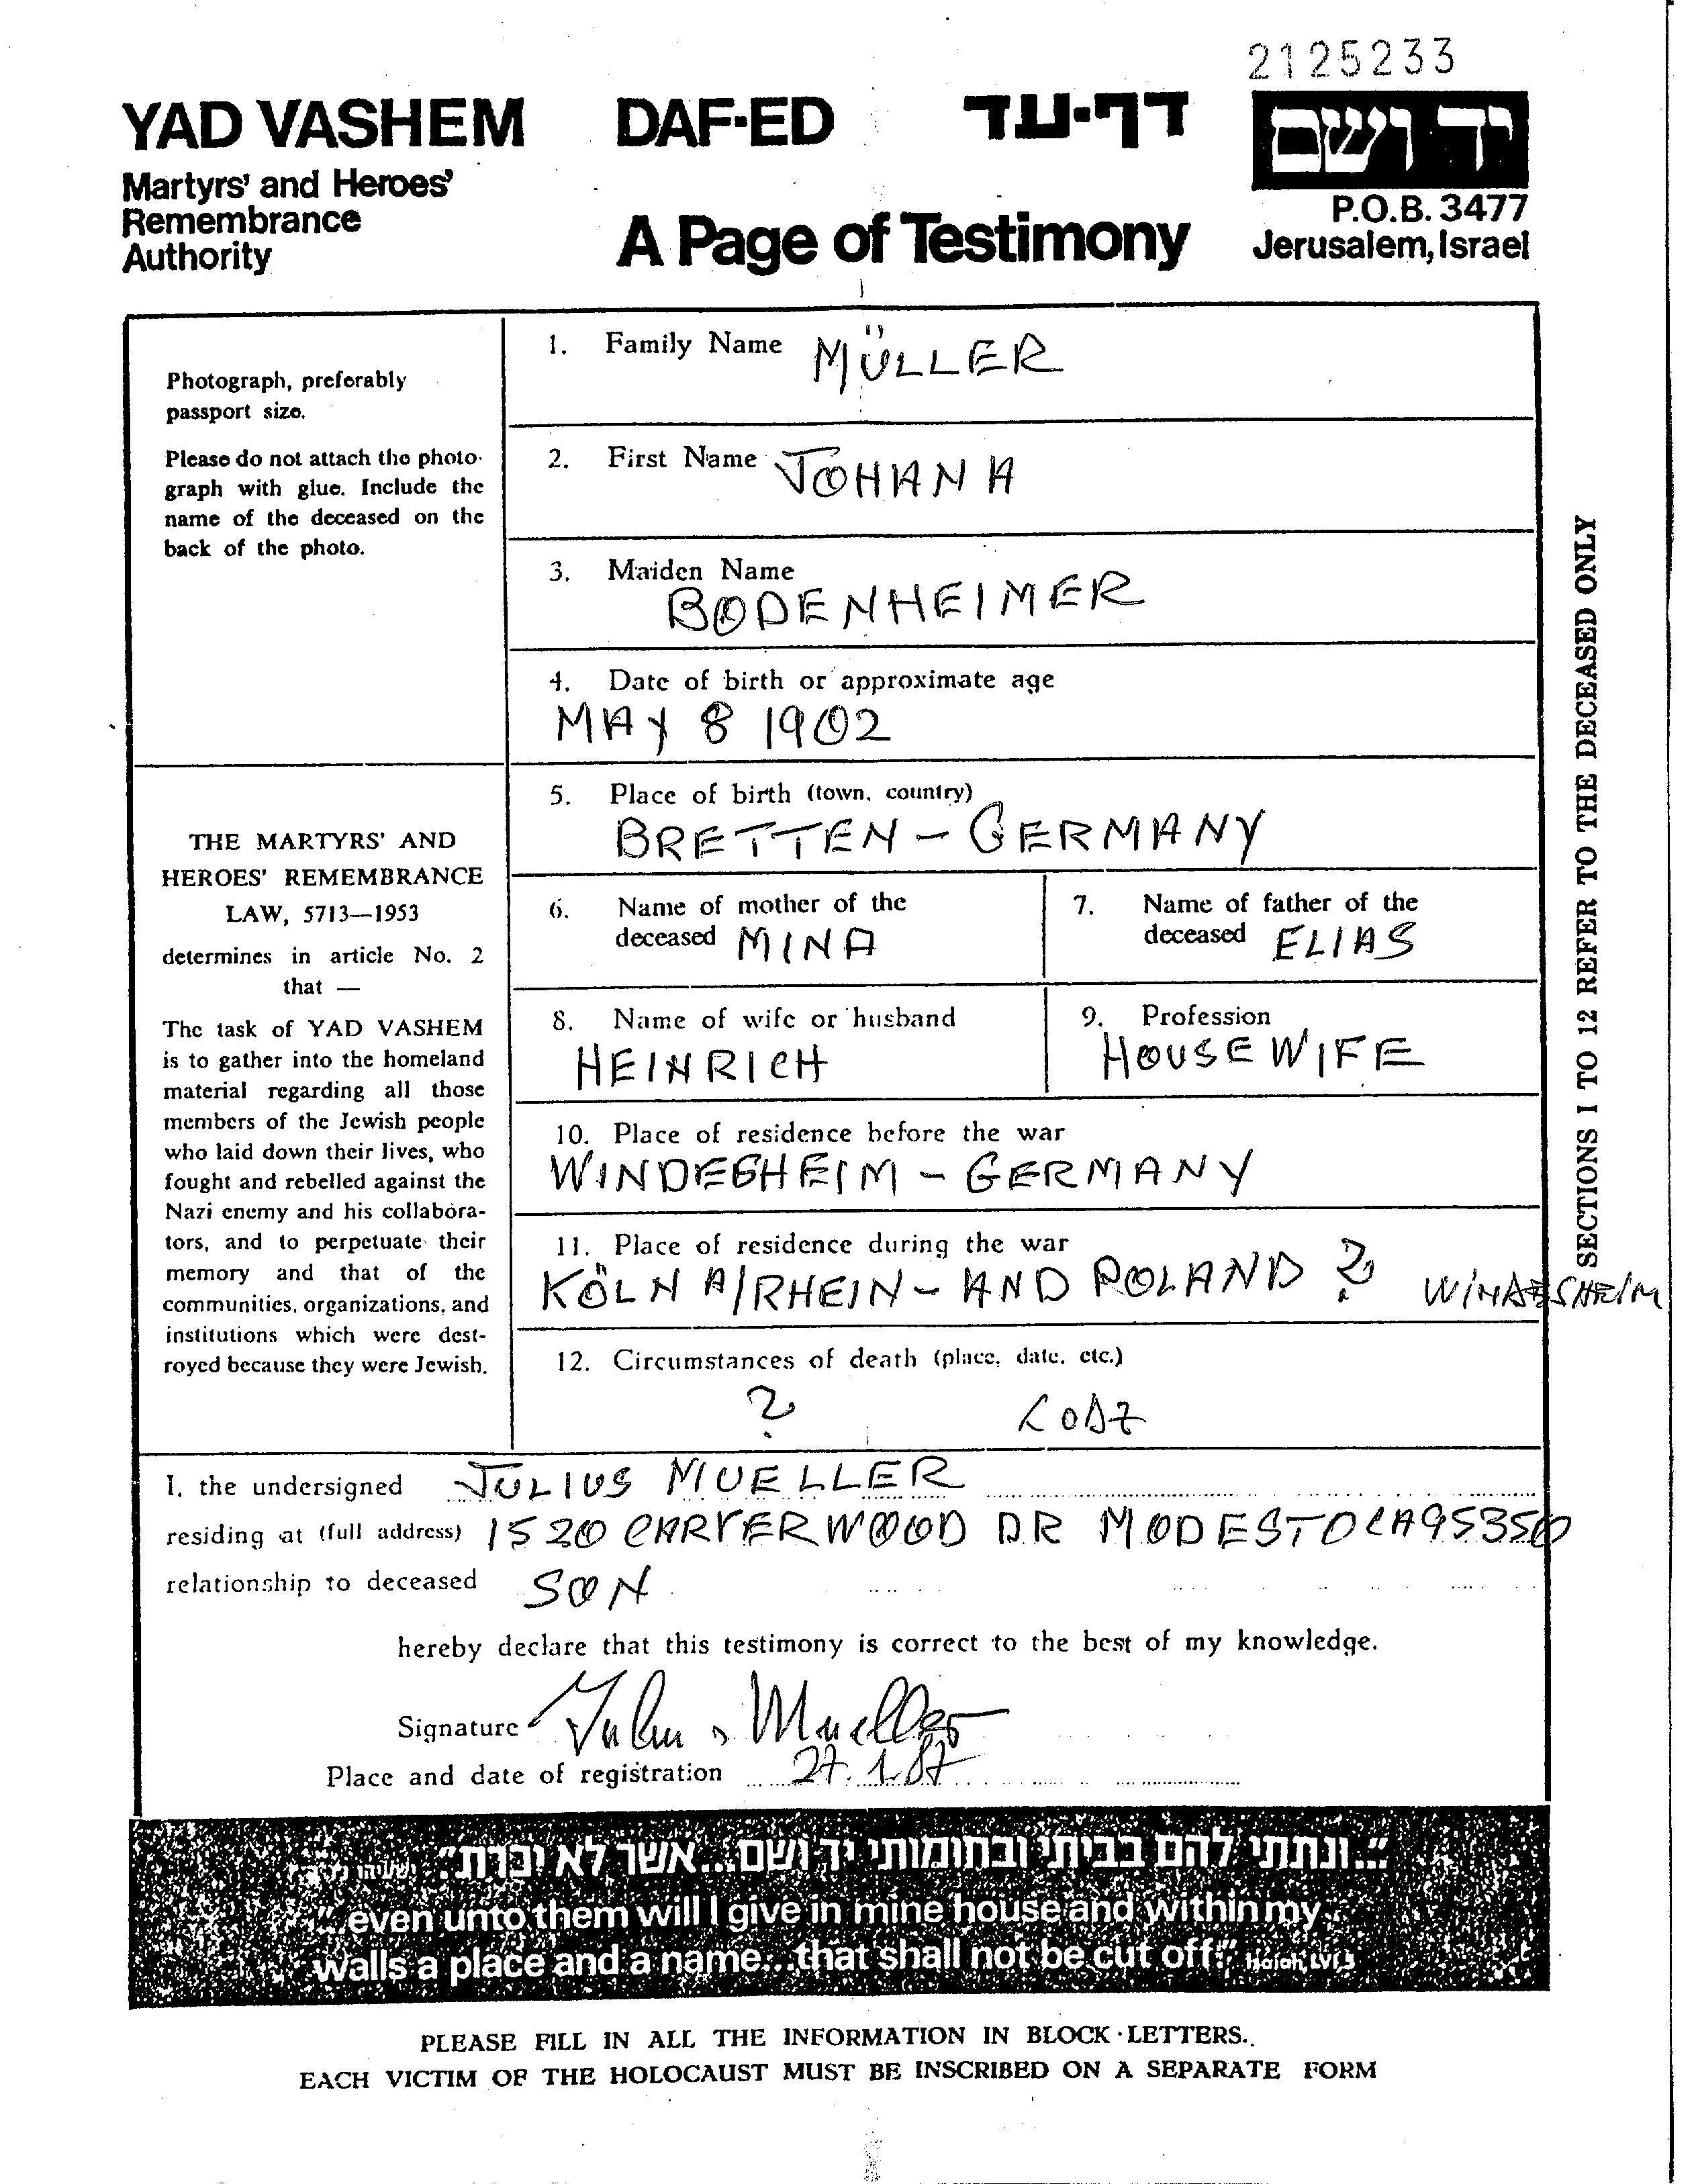 2125233
YAD VASHEM DAF-ED דף-עד יד ושם
Martyrs' and Heroes'
Remembrance
Authority
A Page of Testimony
P.O.B. 3477
Jerusalem, Israel
Photograph, preferably
passport size.
Please do not attach the photo-
graph with glue. Include the
name of the deceased on the
back of the photo.
THE MARTYRS' AND
HEROES' REMEMBRANCE
LAW, 5713—1953
determines in article No. 2
that —
The task of YAD VASHEM
is to gather into the homeland
material regarding all those
members of the Jewish people
who laid down their lives, who
fought and rebelled against the
Nazi enemy and his collabora-
tors, and to perpetuate their
memory and that of the
communities, organizations, and
institutions which were dest-
royed because they were Jewish.
1. Family Name MÜLLER
2. First Name JOHANA
3. Maiden Name
BODENHEIMER
4. Date of birth or approximate age
MAY 8 1902
5. Place of birth (town, country)
BRETTEN - GERMANY
6. Name of mother of the
deceased MINA
7. Name of father of the
deceased ELIAS
8. Name of wife or husband
HEINRICH
9. Profession
HOUSEWIFE
10. Place of residence before the war
WINDESHEIM - GERMANY
11. Place of residence during the war
KÖLN A/RHEIN - AND POLAND ? WINDESHEIM
12. Circumstances of death (place, date, etc.)
? LODZ
SECTIONS 1 TO 12 REFER TO THE DECEASED ONLY
I, the undersigned JULIUS MUELLER
residing at (full address) 1520 CARVERWOOD DR MODESTO CA 95350
relationship to deceased SON
hereby declare that this testimony is correct to the best of my knowledge.
Signature Julius Mueller
Place and date of registration 27.1.87
"...ונתתי להם בביתי ובחומותי יד ושם...אשר לא יכרת"
"even unto them will I give in mine house and within my
walls a place and a name...that shall not be cut off." Isaiah, LVI,5
PLEASE FILL IN ALL THE INFORMATION IN BLOCK LETTERS.
EACH VICTIM OF THE HOLOCAUST MUST BE INSCRIBED ON A SEPARATE FORM